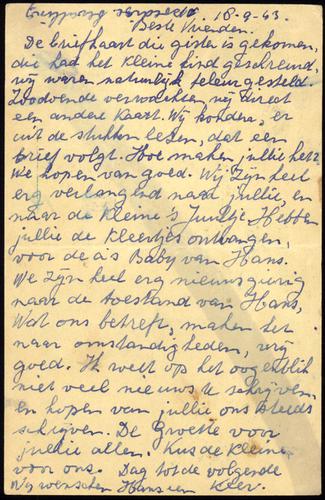 18-9-43.
Beste Vrienden.
De briefkaart die gister is gekomen,
die had het kleine kind geschreund,
wij waren natuurlijk teleurgesteld.
verwachten wij direct
een andere kaart. Wij konden, er
uit de stukken lezen, dat een
brief volgt. Hoe maken jullie het?
We hopen van goed. Wij zijn heel
erg verlangend naar jullie, en
naar de kleine's Hebben
jullie de kleertjes ontvangen,
voor de Baby van Hans.
We zijn heel erg nieuwsgierig
naar de toestand van Hans,
Wat ons betreft, maken het
naar omstandigheden, vrij
goed. Ik weet op het oogenblik
niet veel nieuws te schrijven
en hopen van jullie ons steeds
schrijven. De groette voor
jullie allen. Kus de kleine
voor ons. Dag tot de volgende
Wij wenschen Hans een keer.